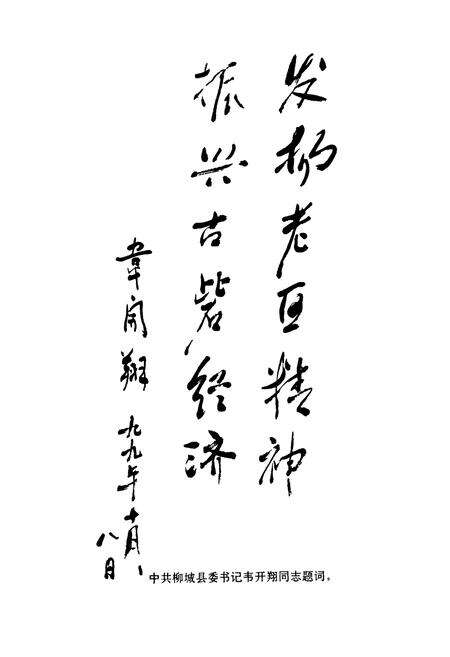 发扬老区精神
振兴古砦经济
韦开翔
九九年十月
八日
中共柳城县委书记韦开翔同志题词。